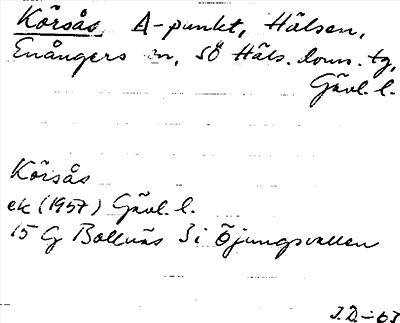 Körsås, A-punkt, Hälsen,
Enångers sn, SÖ Häls. doms. tg,
Gävl. l.
Körsås
ek (1957) Gävl. l.
15 G Bollnäs 3i Öjungsvallen
J.D.-63